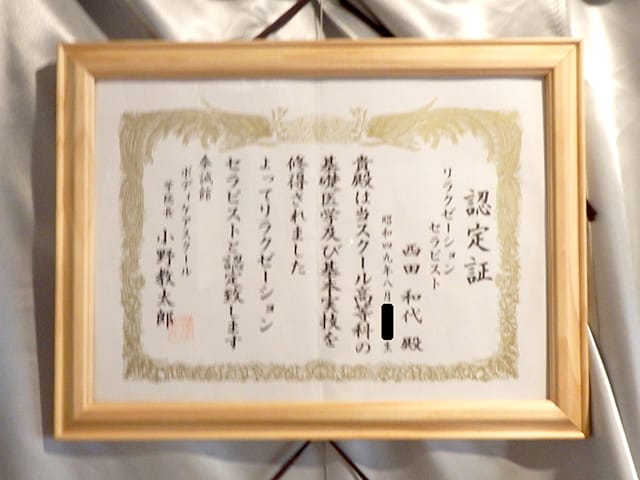 認定証
リラクゼーション
セラピスト
西田 和代 殿
昭和四九年八月 生
貴殿は当スクール高等科の
基礎医学及び基本実技を
修得されました
よってリラクゼーション
セラピストと認定致します
ボディケアスクール
学院長 小野教太郎